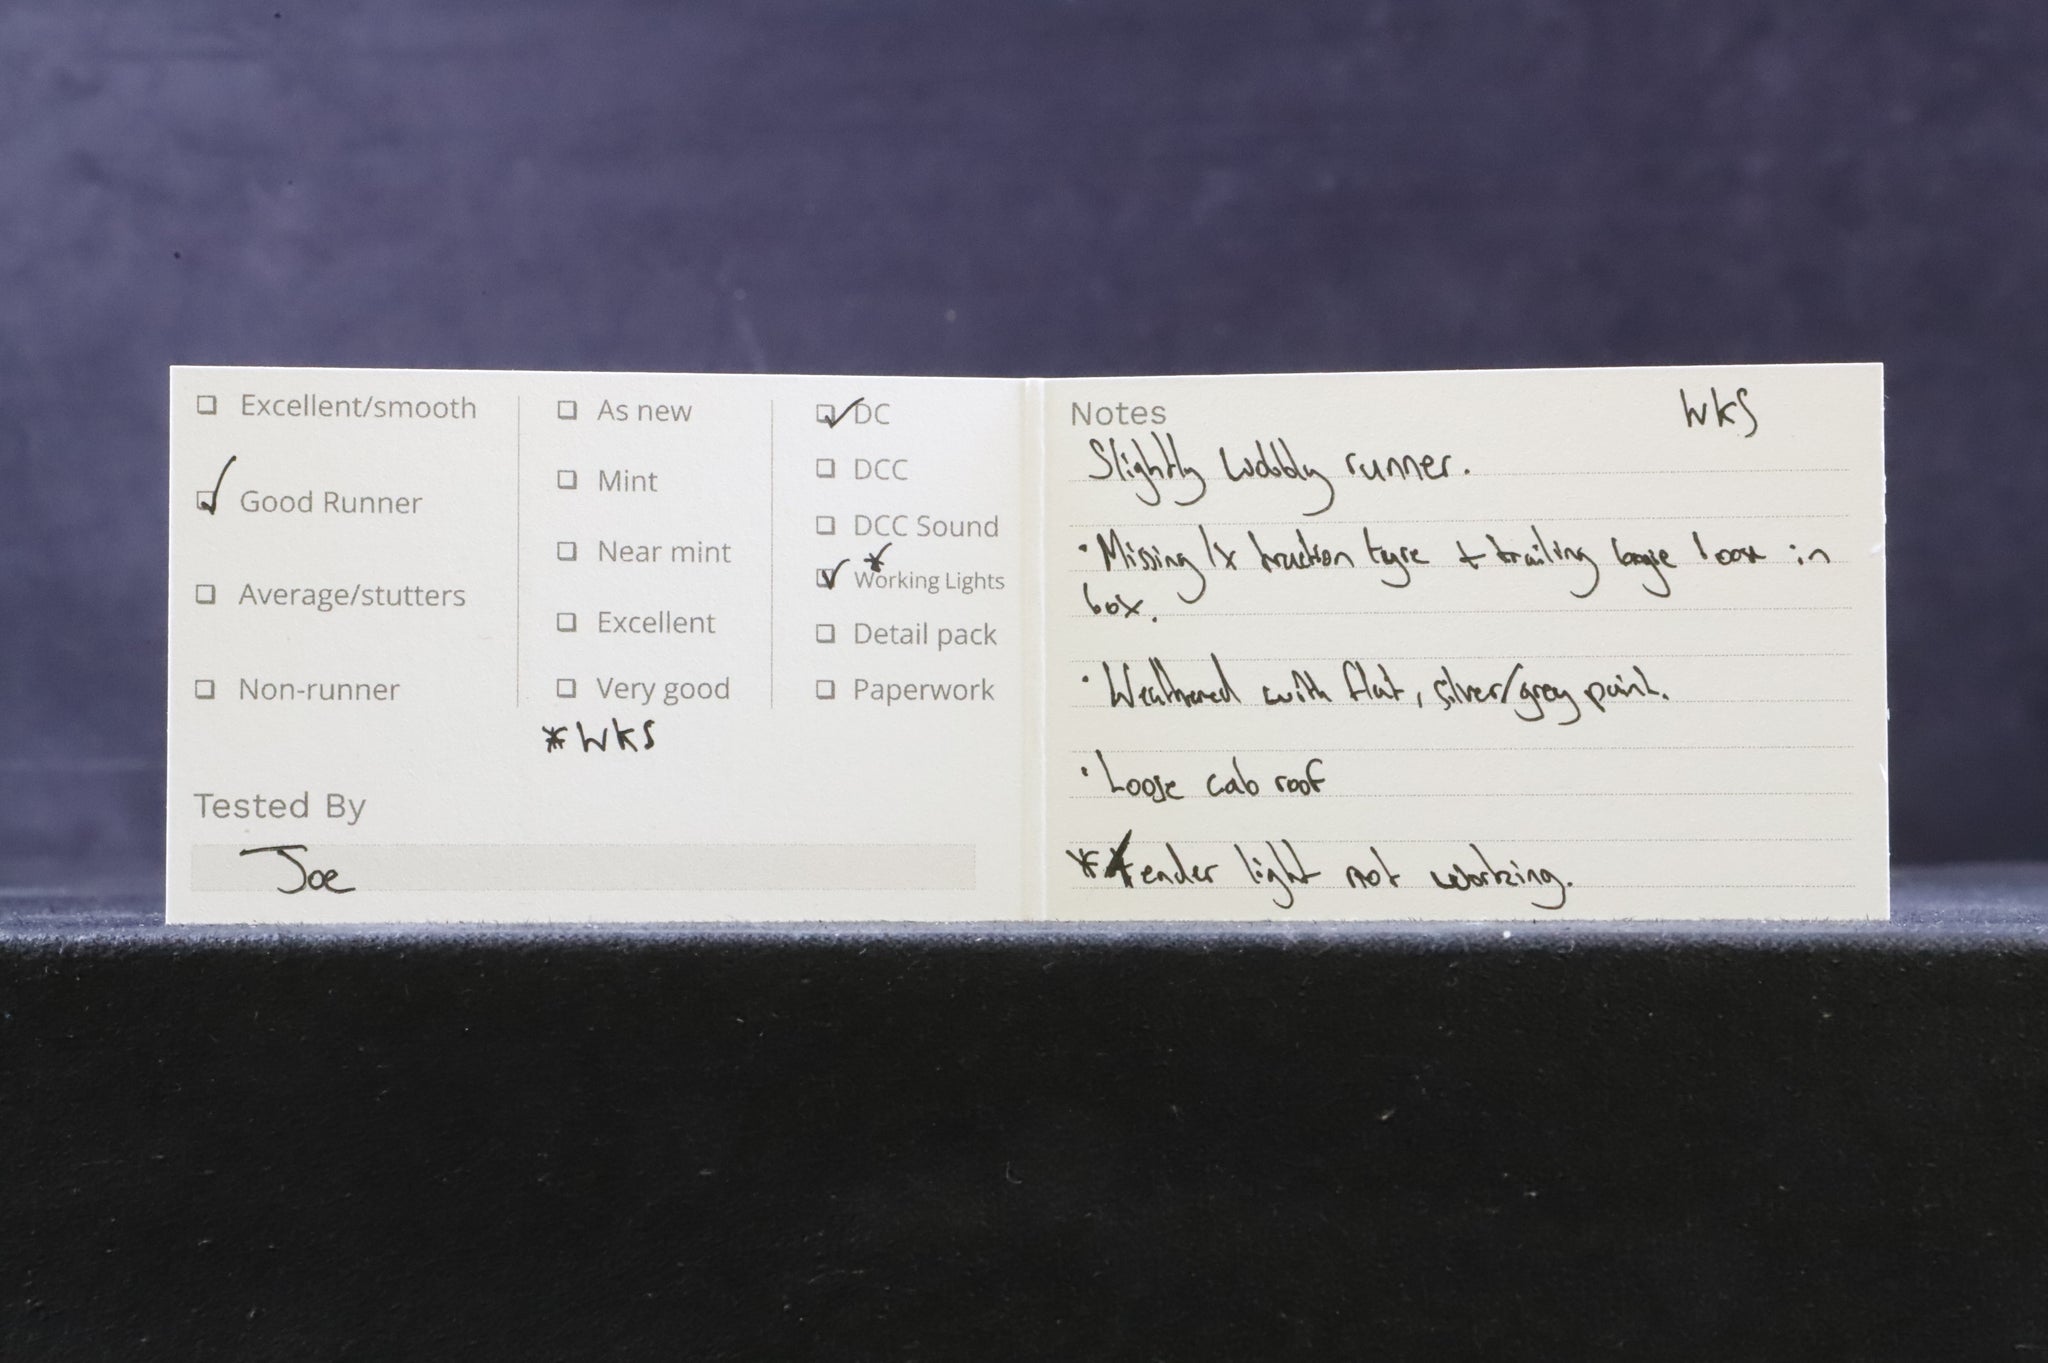 Excellent/smooth
Good Runner
Average/stutters
Non-runner
As new
Mint
Near mint
Excellent
Very good
*WKS
DC
DCC
DCC Sound
*
Working Lights
Detail pack
Paperwork
Tested By
Joe
Notes
WKS
Slightly wobbly runner.
· Missing 1x traction tyre + trailing bogie loose in
box.
· Weathered with flat, silver/grey paint.
· Loose cab roof
* tender light not working.